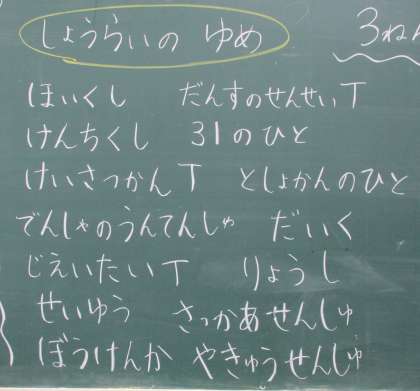 しょうらいの ゆめ 3ねん
ほいくし だんすのせんせい T
けんちくし 31のひと
けいさつかん T としょかんのひと
でんしゃのうんてんしゅ だいく
じえいたい T りょうし
せいゆう さっかあせんしゅ
ぼうけんか やきゅうせんしゅ